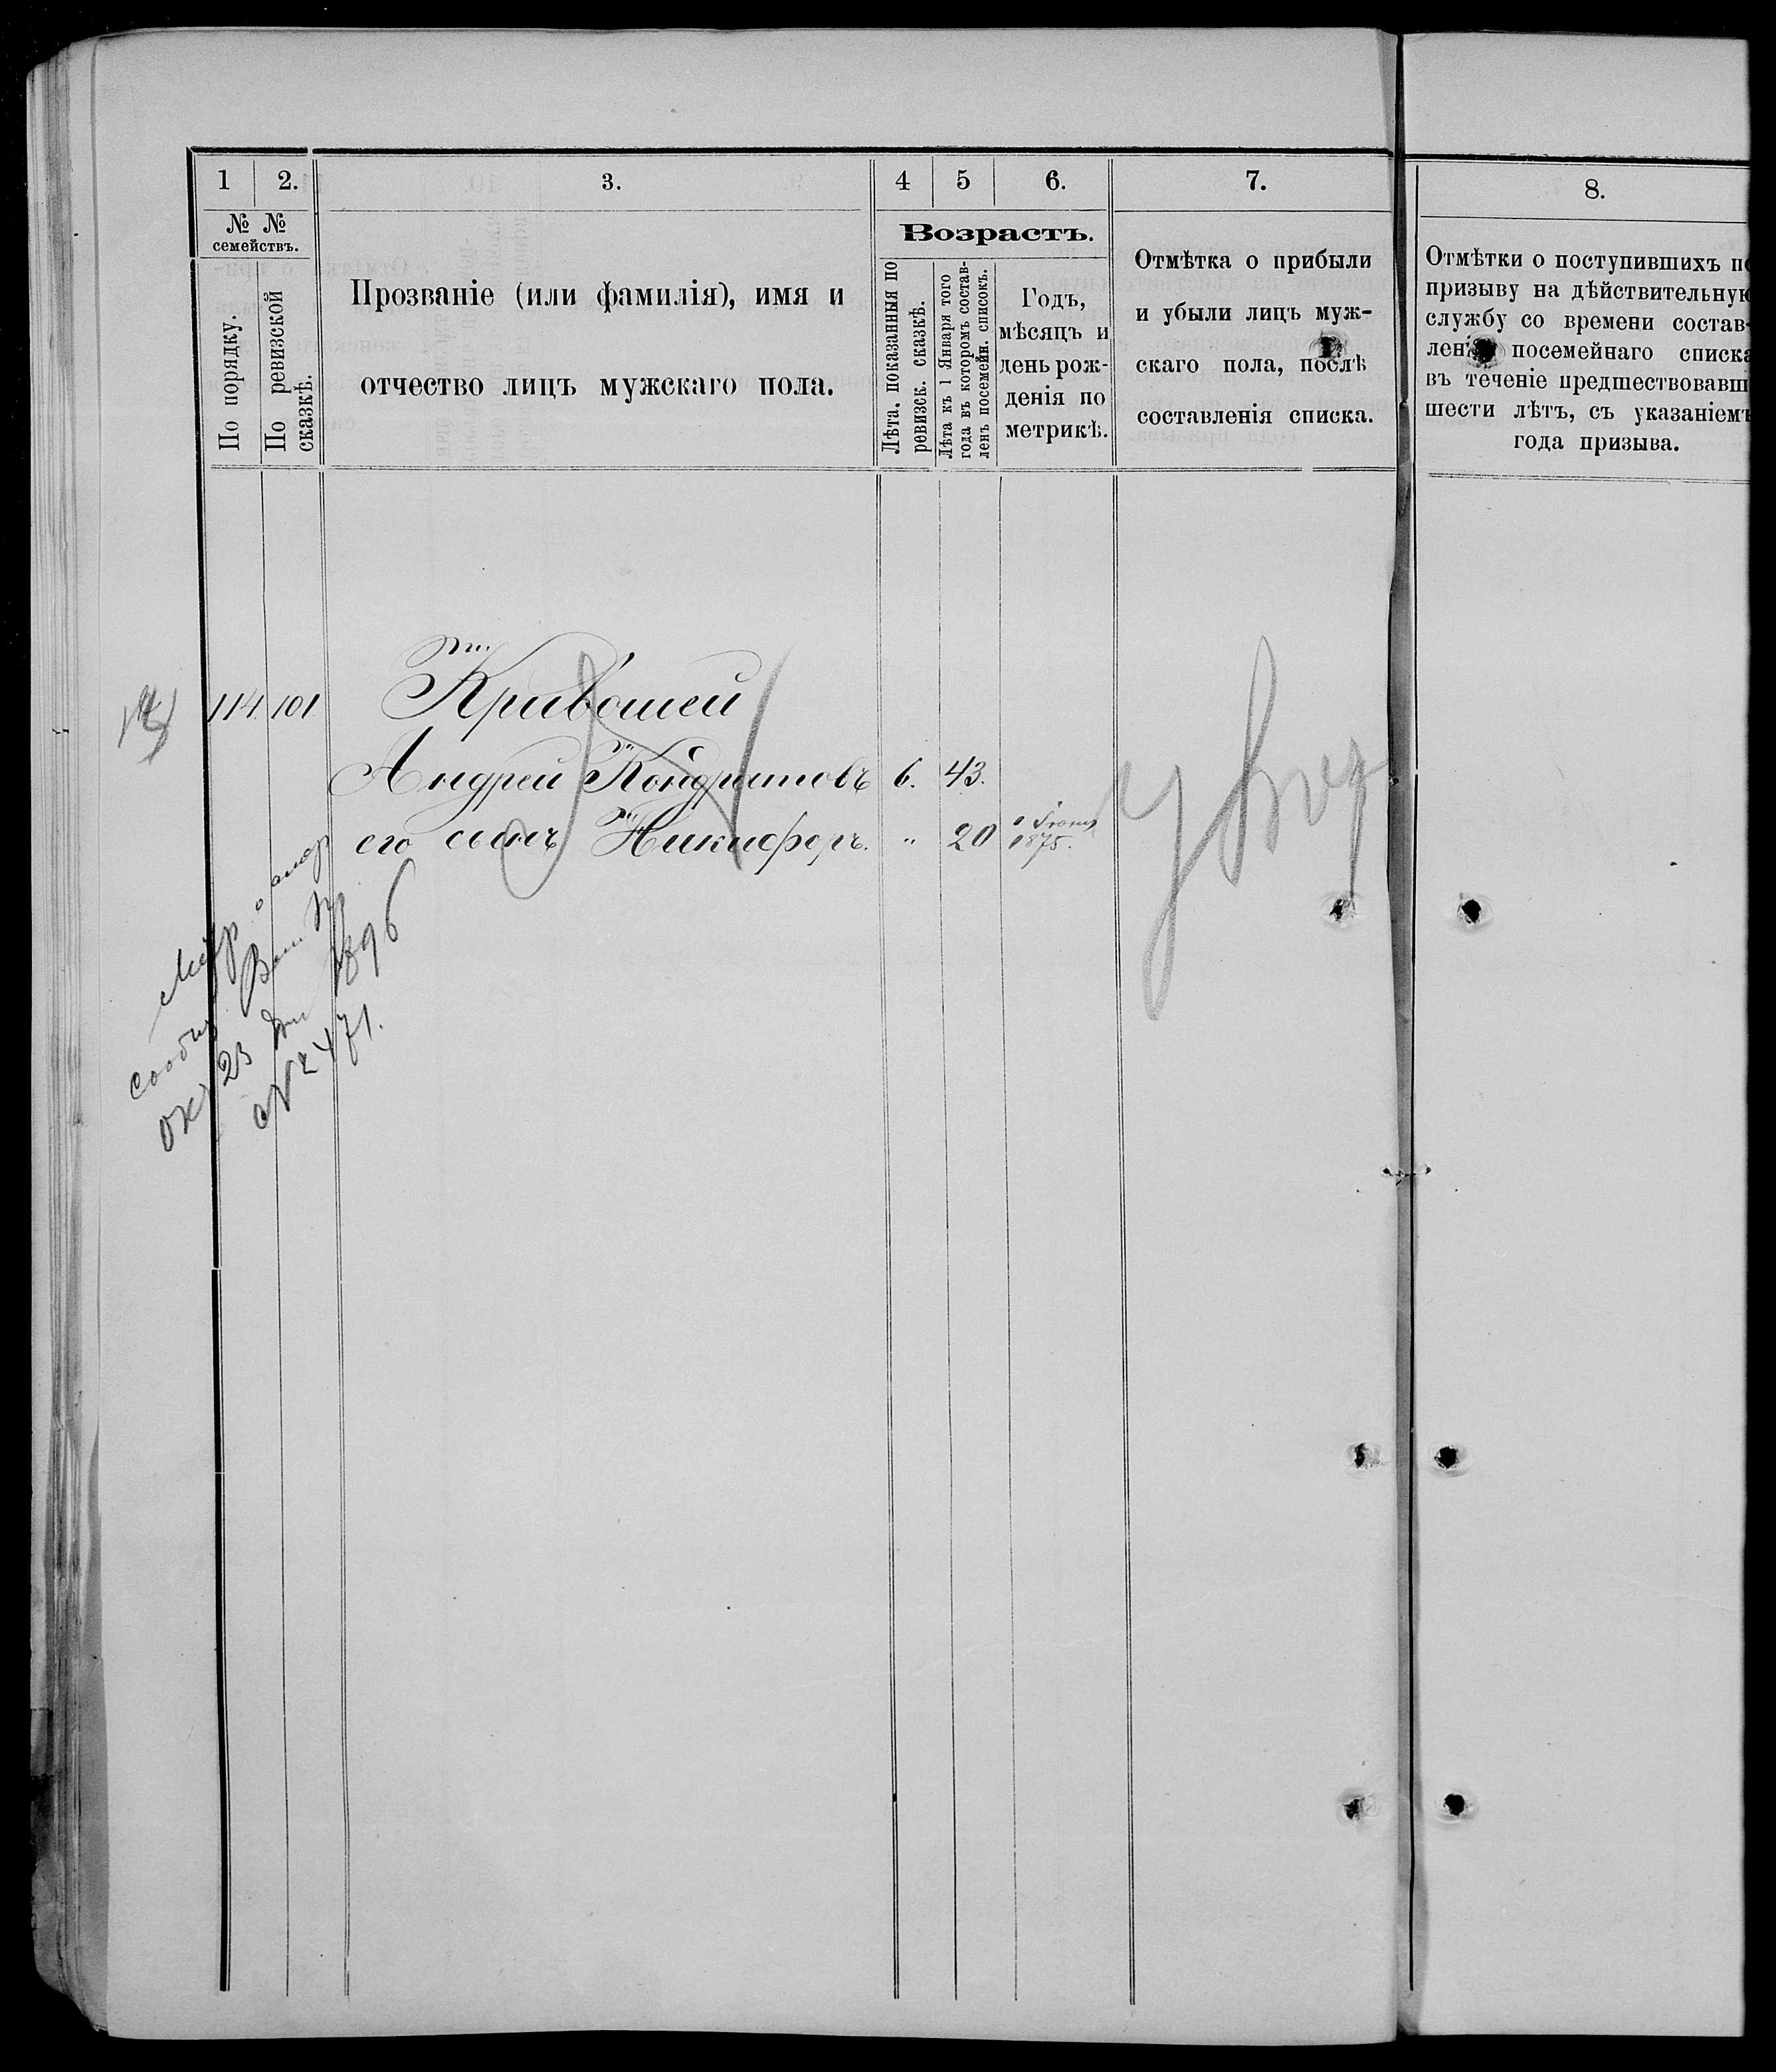 1 2. 3. 4 5 6. 7. 8.
№ № семействъ.
По порядку.
По ревизской сказкѣ.
Прозваніе (или фамилія), имя и
отчество лицъ мужскаго пола.
Возрастъ.
Лѣта, показанныя по
ревизск. сказкѣ.
Лѣта къ 1 Января того
года въ которомъ состав-
ленъ посемейн. списокъ.
Годъ,
мѣсяцъ и
день рож-
денія по
метрикѣ.
Отмѣтка о прибыли
и убыли лицъ муж-
скаго пола, послѣ
составленія списка.
Отмѣтки о поступившихъ по
призыву на дѣйствительную
службу со времени состав-
ленія посемейнаго списка
въ теченіе предшествовавш
шести лѣтъ, съ указаніемъ
года призыва.
114. 101 Кривошей
Андрей Кондратовъ 6. 43.
его сынъ Никифоръ. „ 20
1875.
23 1896
№ 2471.